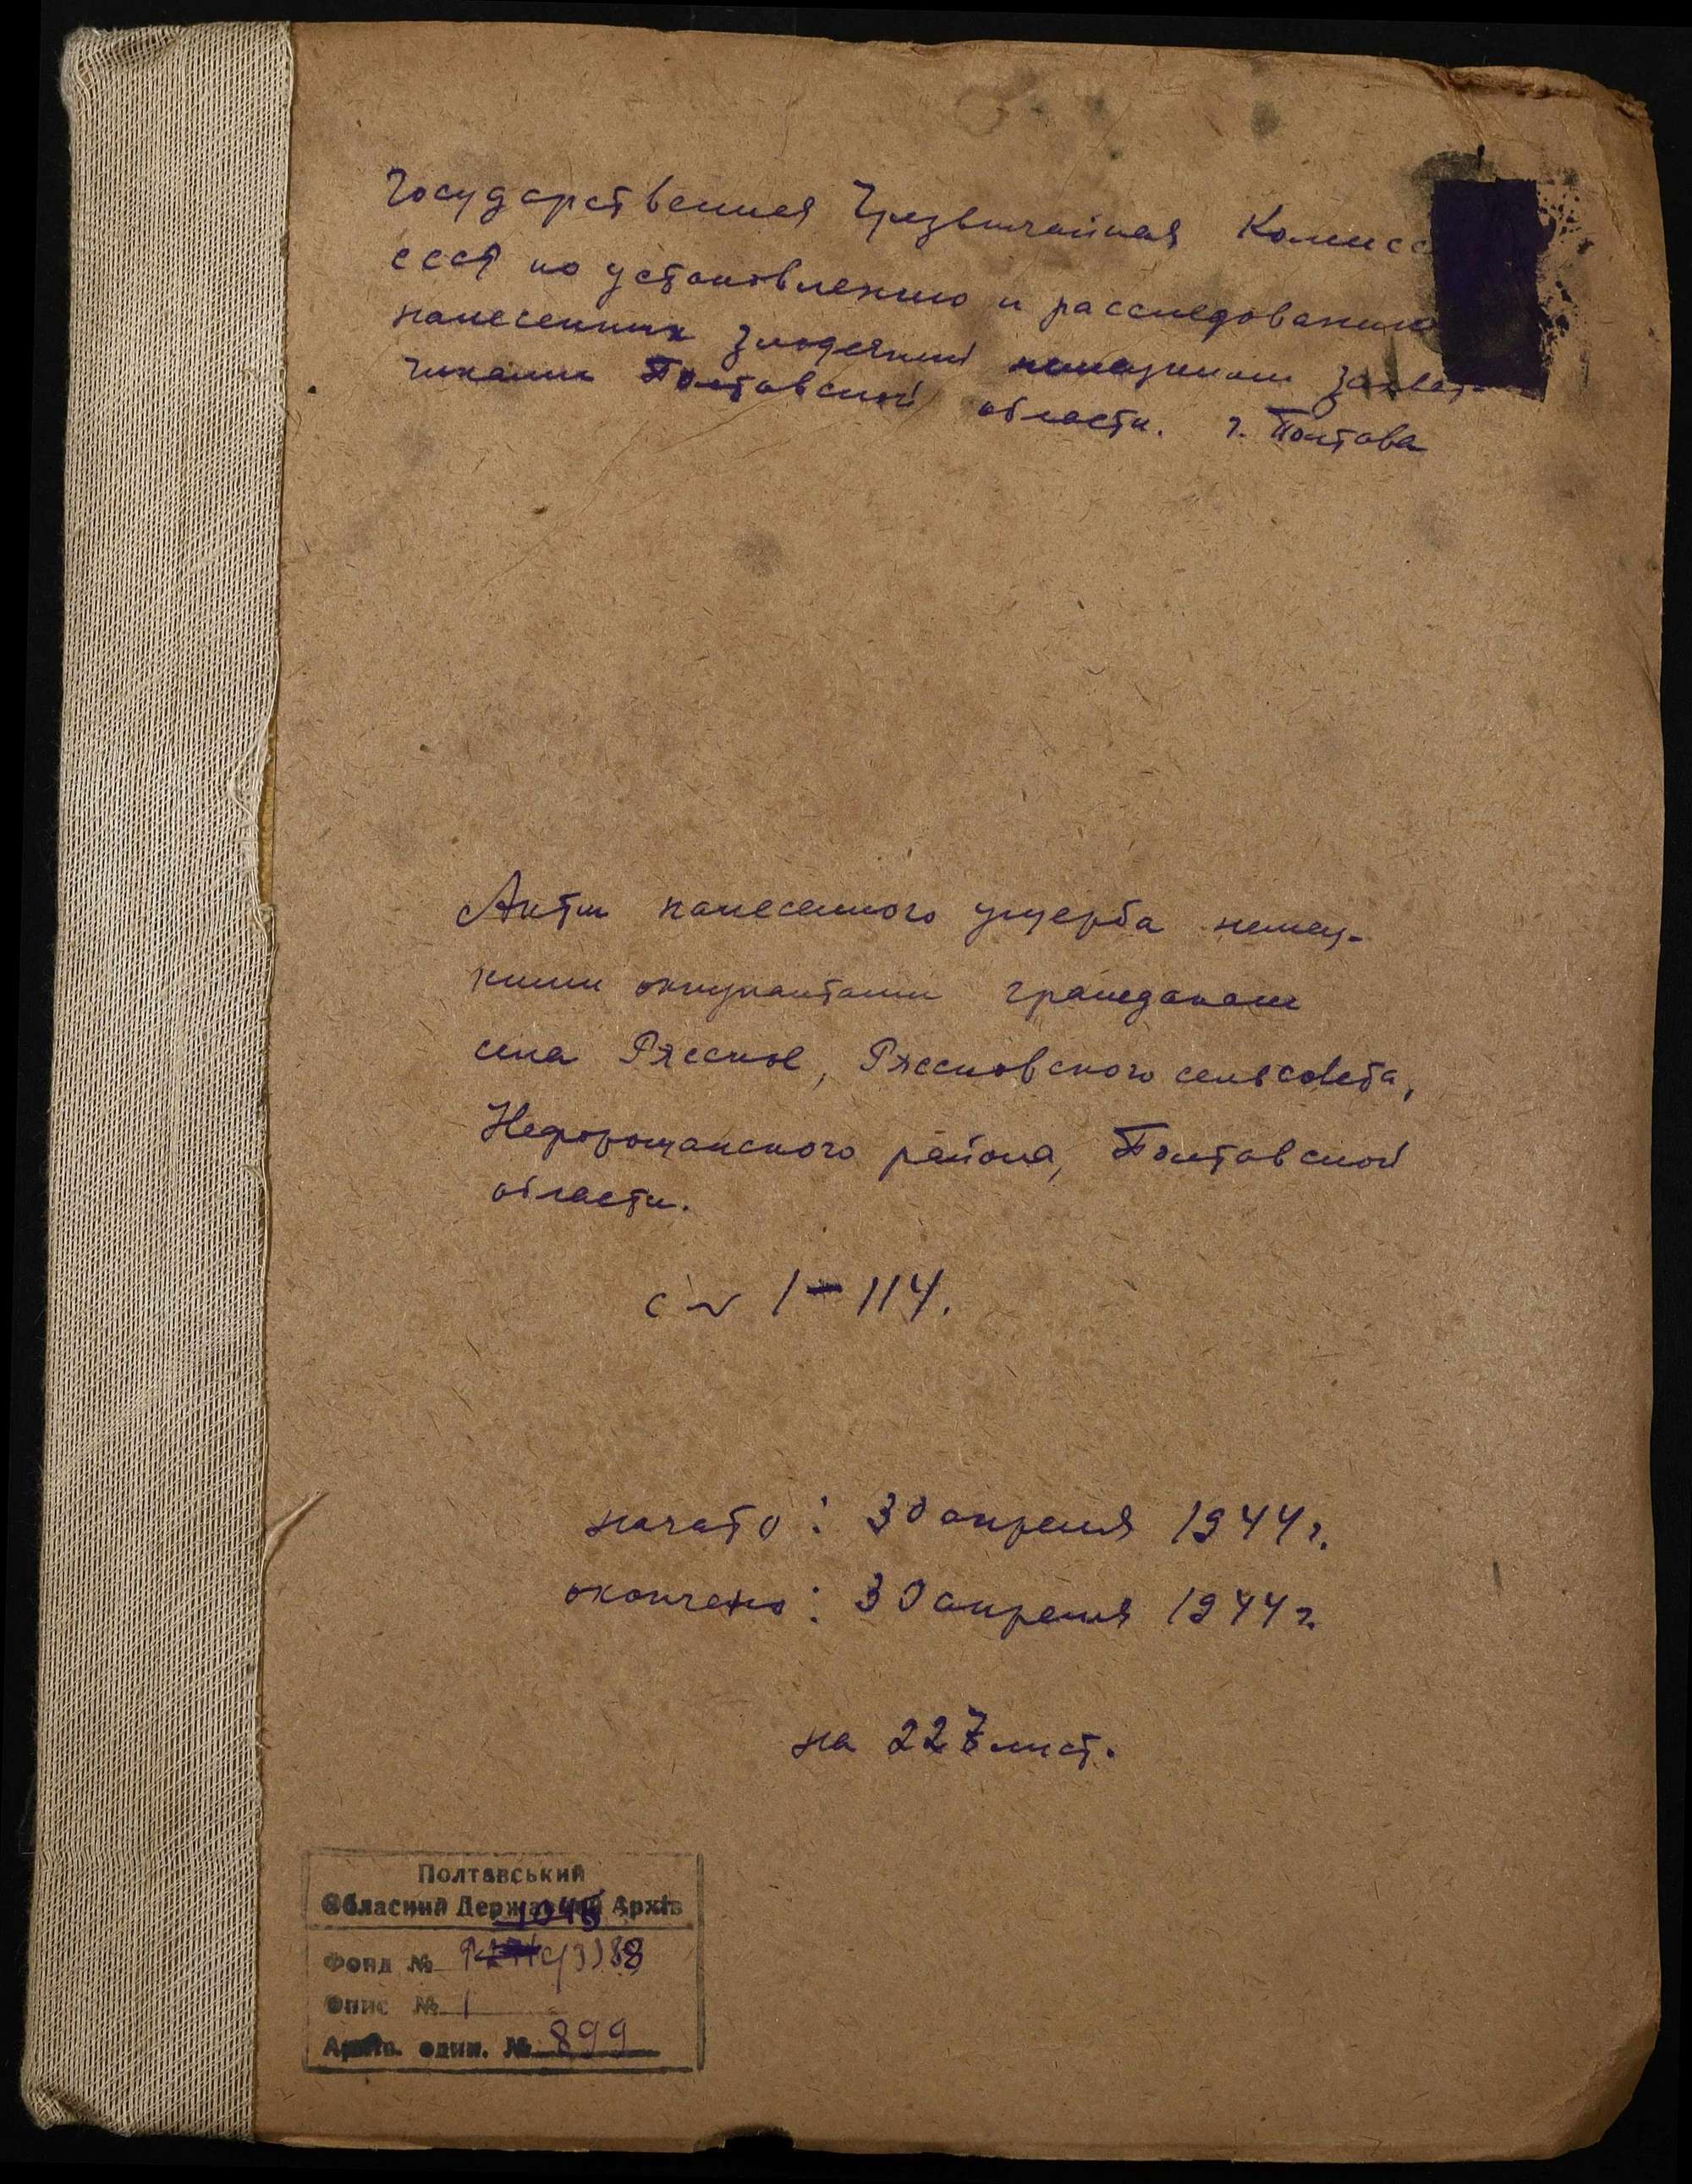 Государственная Чрезвычайная Комисс
СССР по установлению и расследованию
нанесенных злодеяний немецкими захват-
чиками Полтавской области. г. Полтава
Акты нанесенного ущерба немец-
кими оккупантами гражданам
села Рясское, Рясковского сельсовета,
Нефорощанского района, Полтавской
области.
с № 1-114.
начато: 30 апреля 1944 г.
окончено: 30 апреля 1944 г.
на 227 лист.
Полтавський
Обласний Державний Архів
Фонд №
Опис № 1
Архів. один. № 899